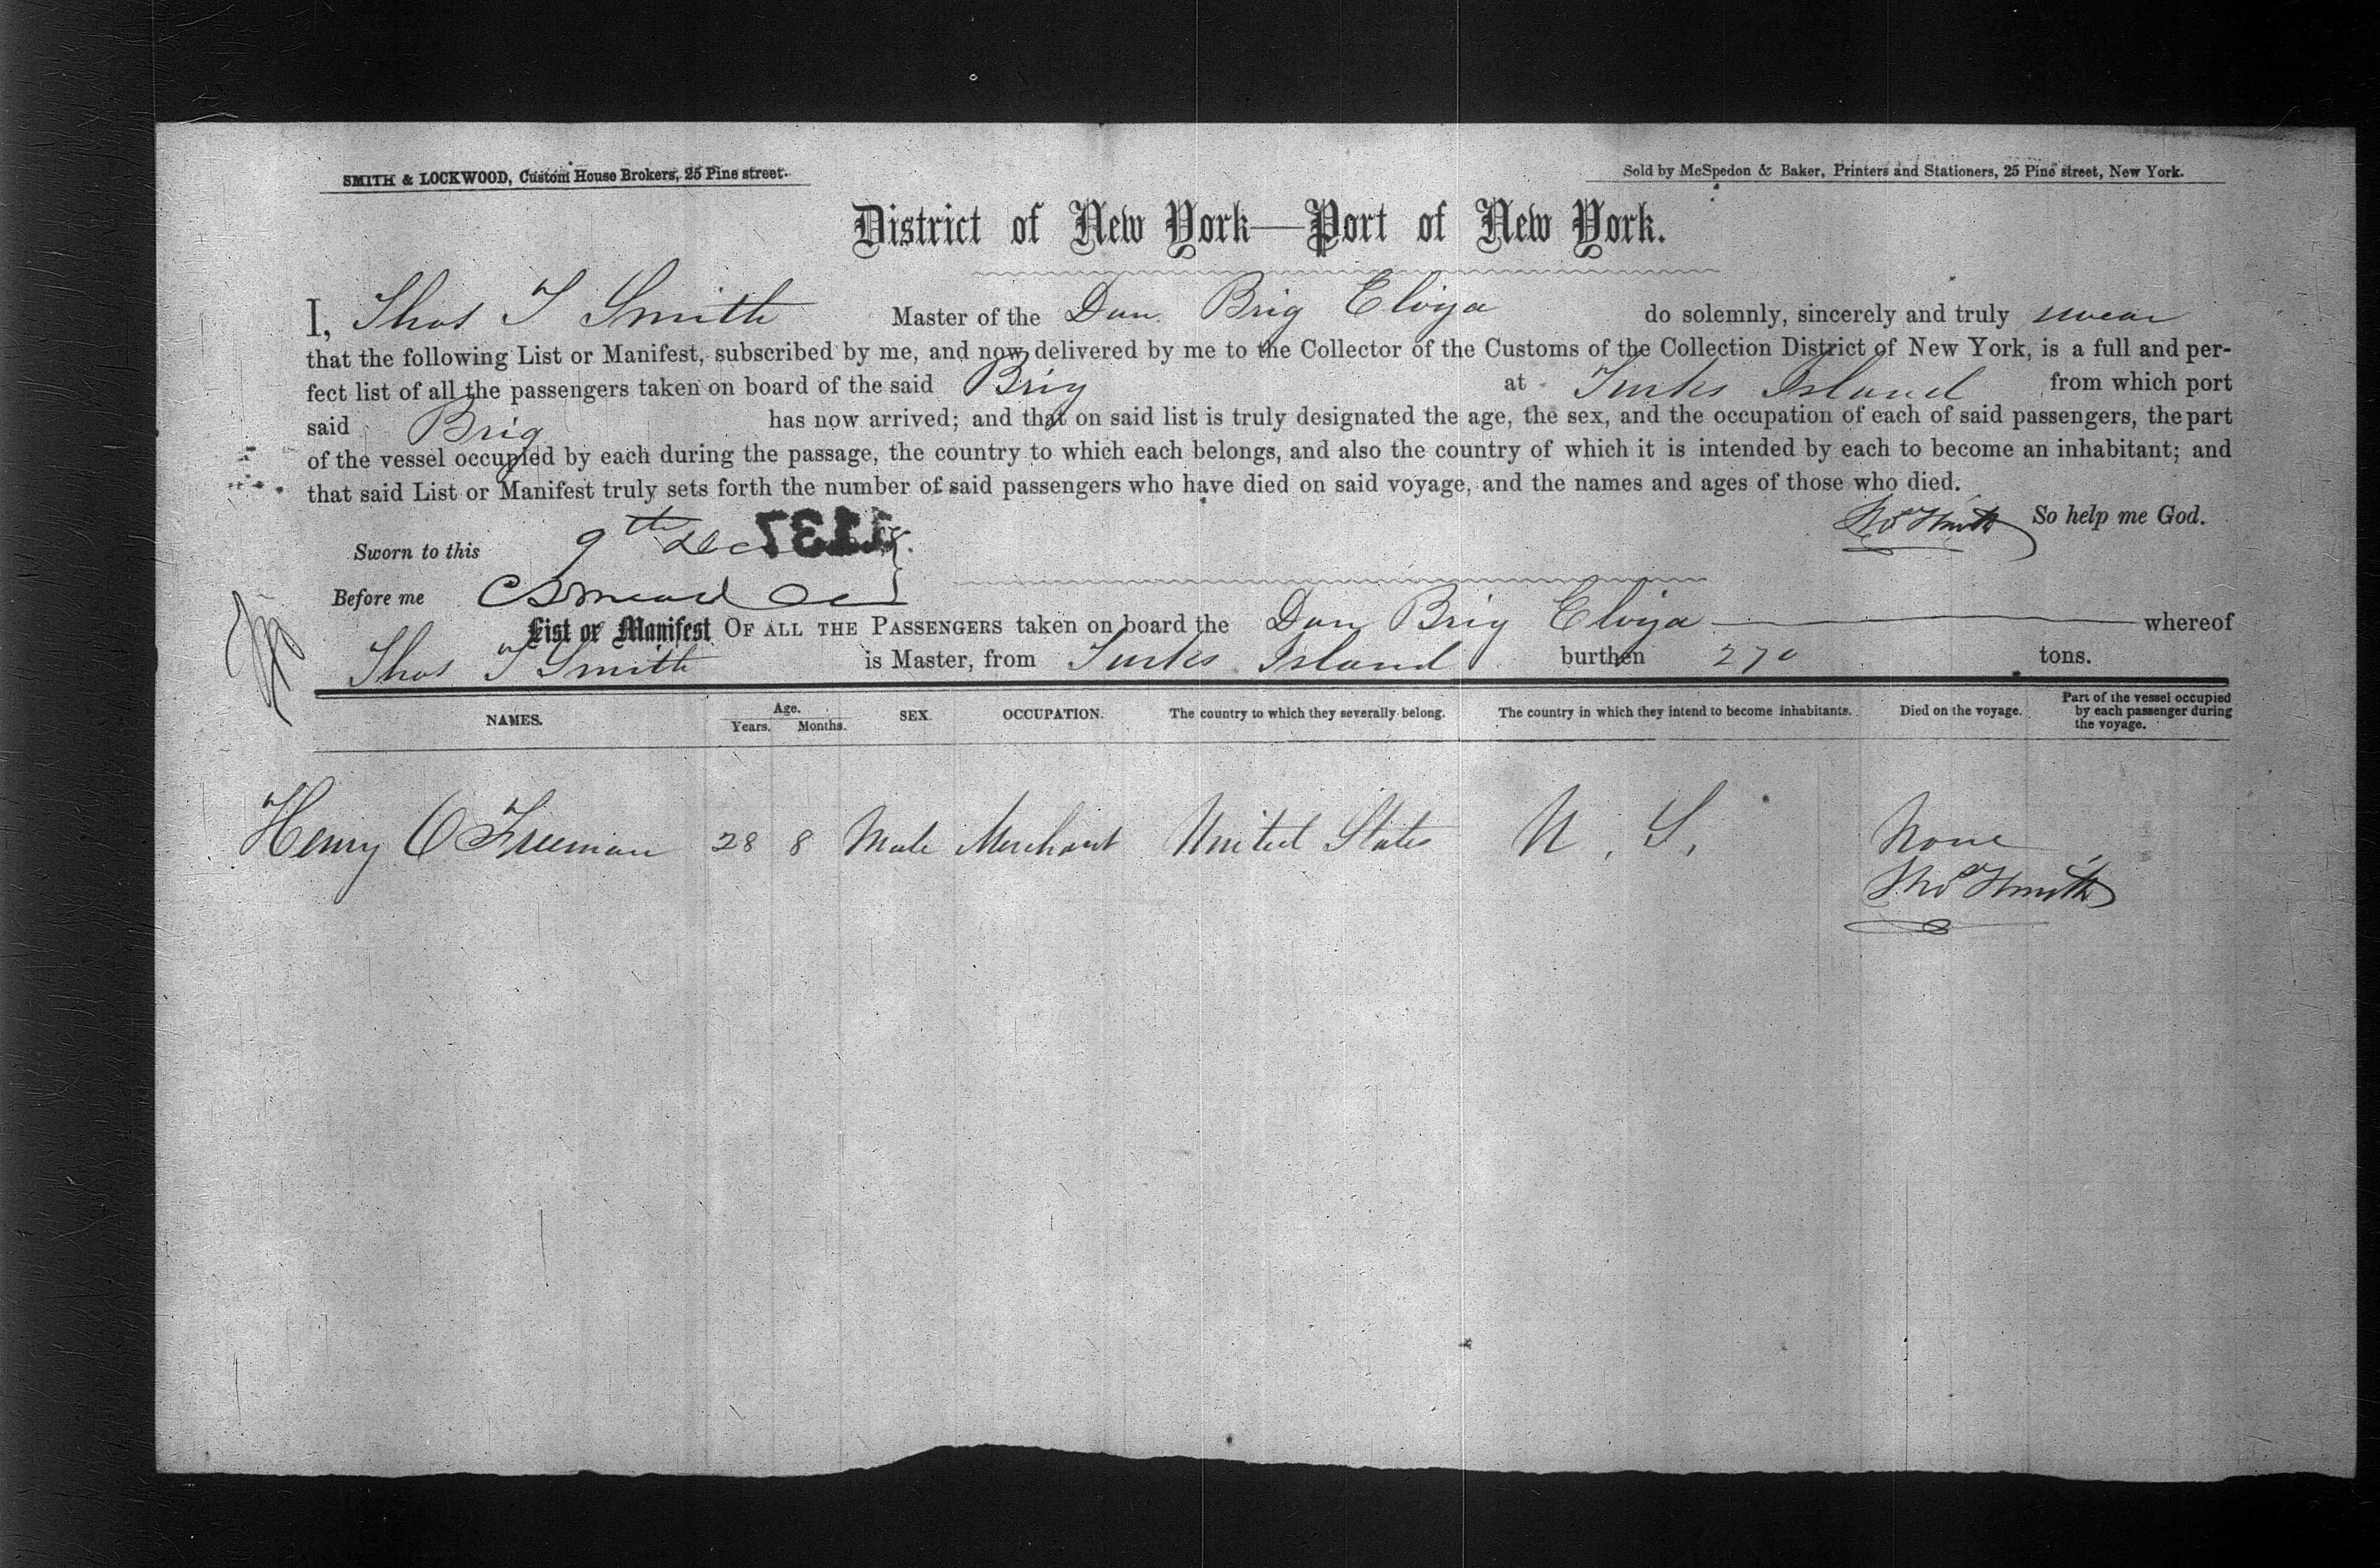 SMITH & LOCKWOOD, Custom House Brokers, 25 Pine street.
Sold by McSpedon & Baker, Printers and Stationers, 25 Pine street, New York.
District of New York—Port of New York.
I, Thos T Smith Master of the Dan Brig Eloiza do solemnly, sincerely and truly swear
that the following List or Manifest, subscribed by me, and now delivered by me to the Collector of the Customs of the Collection District of New York, is a full and per-
fect list of all the passengers taken on board of the said Brig at Turks Island from which port
said Brig has now arrived; and that on said list is truly designated the age, the sex, and the occupation of each of said passengers, the part
of the vessel occupied by each during the passage, the country to which each belongs, and also the country of which it is intended by each to become an inhabitant; and
that said List or Manifest truly sets forth the number of said passengers who have died on said voyage, and the names and ages of those who died.
Thos Smith So help me God.
Sworn to this 9th Dec 1137
Before me
List or Manifest OF ALL THE PASSENGERS taken on board the Dan Brig Eloiza whereof
Thos T Smith is Master, from Turks Island burthen 270 tons.
NAMES. Age. Years. Months. SEX. OCCUPATION. The country to which they severally belong. The country in which they intend to become inhabitants. Died on the voyage. Part of the vessel occupied by each passenger during the voyage.
Henry O Freeman 28 8 Male Merchant United States U. S. None
Thos Smith